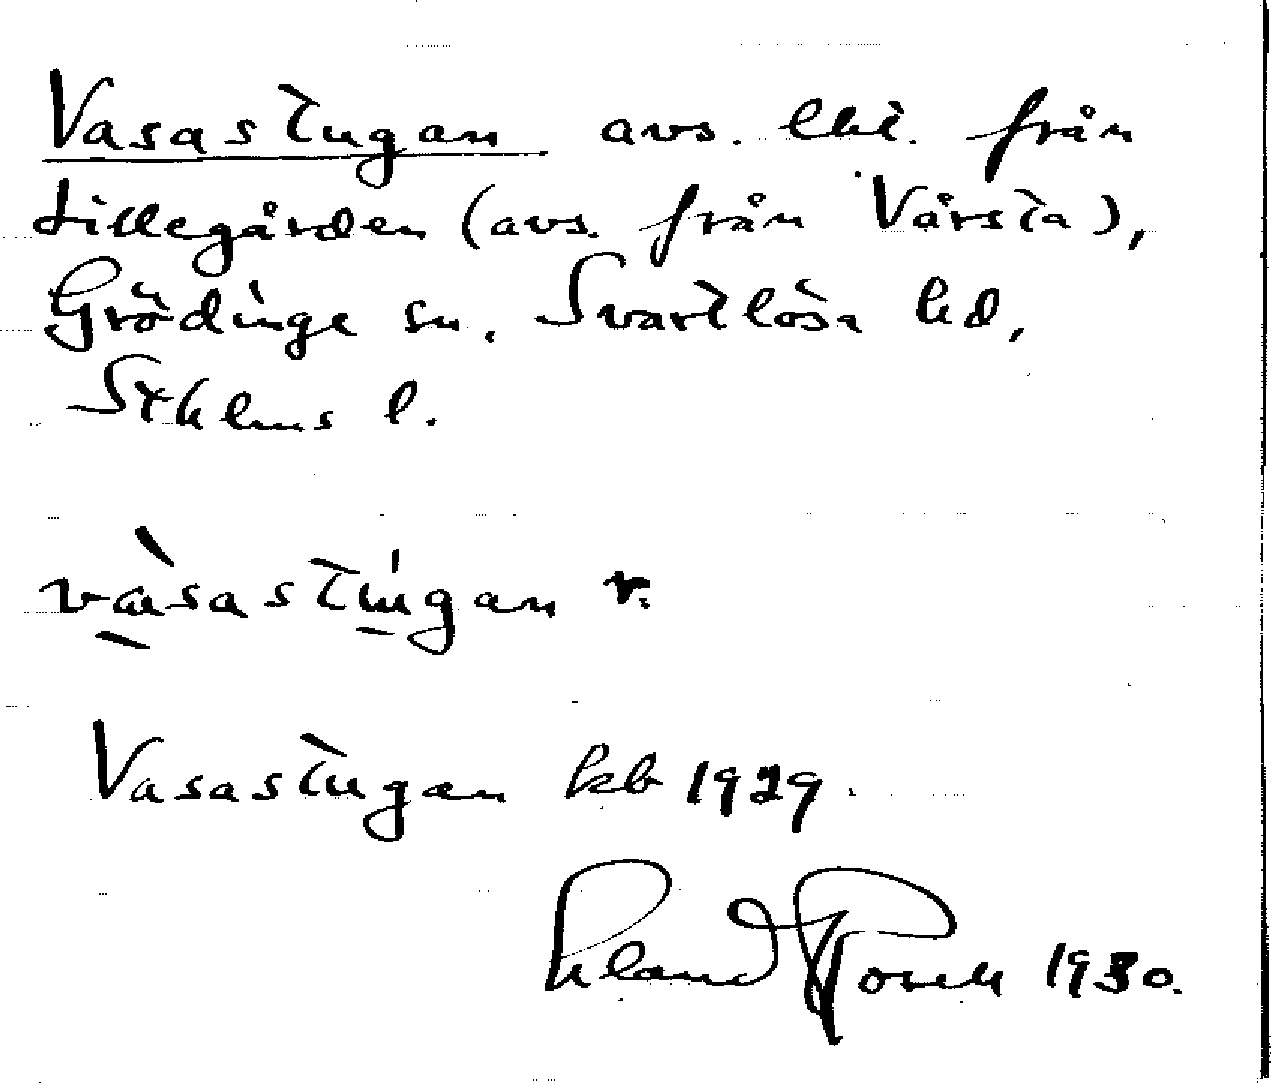 Vasastugan avs. lht. från
Lillegården (avs. från Vårsta),
Grödinge sn. Svartlösa hd,
Sthlms l.
vàsastúgan r.
Vasastugan kb 1929
1930.